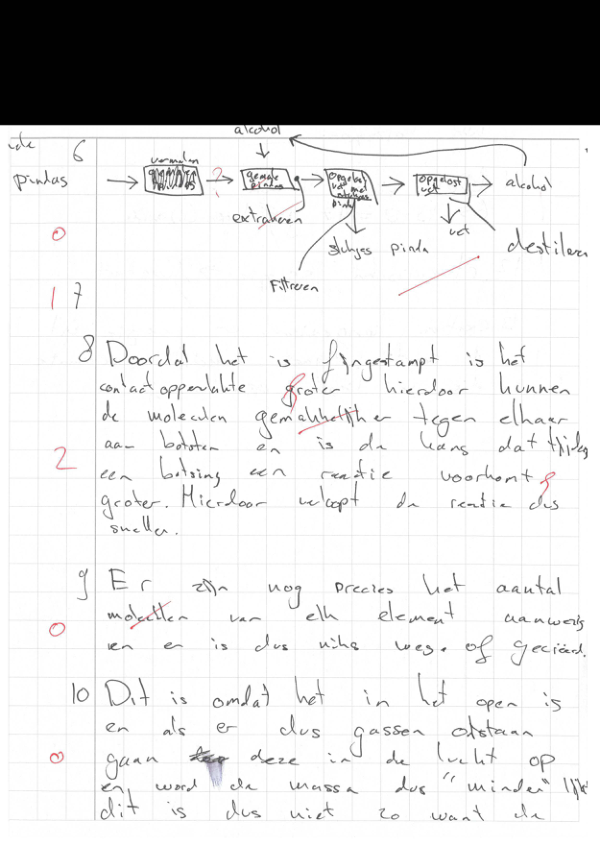 6
alcohol
vermalen
pindas
gemale pindas
opgelost vet met stukjes pinda
opgelost vet
alcohol
extraheren
stukjes pinda
vet
destileren
0
Filtreren
1 7
8 Doordat het is fijngestampt is het
contactoppervlakte groter hierdoor kunnen
de moleculen gemakkelijker tegen elkaar
aan botsten en is de kans dat tijdens
2
een botsing een reactie voorkomt
groter. Hierdoor verloopt de reactie dus
sneller.
9 Er zijn nog precies het aantal
moleculen van elk element aanwezig
0
en er is dus niks weg. of gecreëerd.
10 Dit is omdat het in het open is
en als er dus gassen otstaan
0
gaan deze in de lucht op
en word de massa dus "minder" lijkt
dit is dus niet zo want de